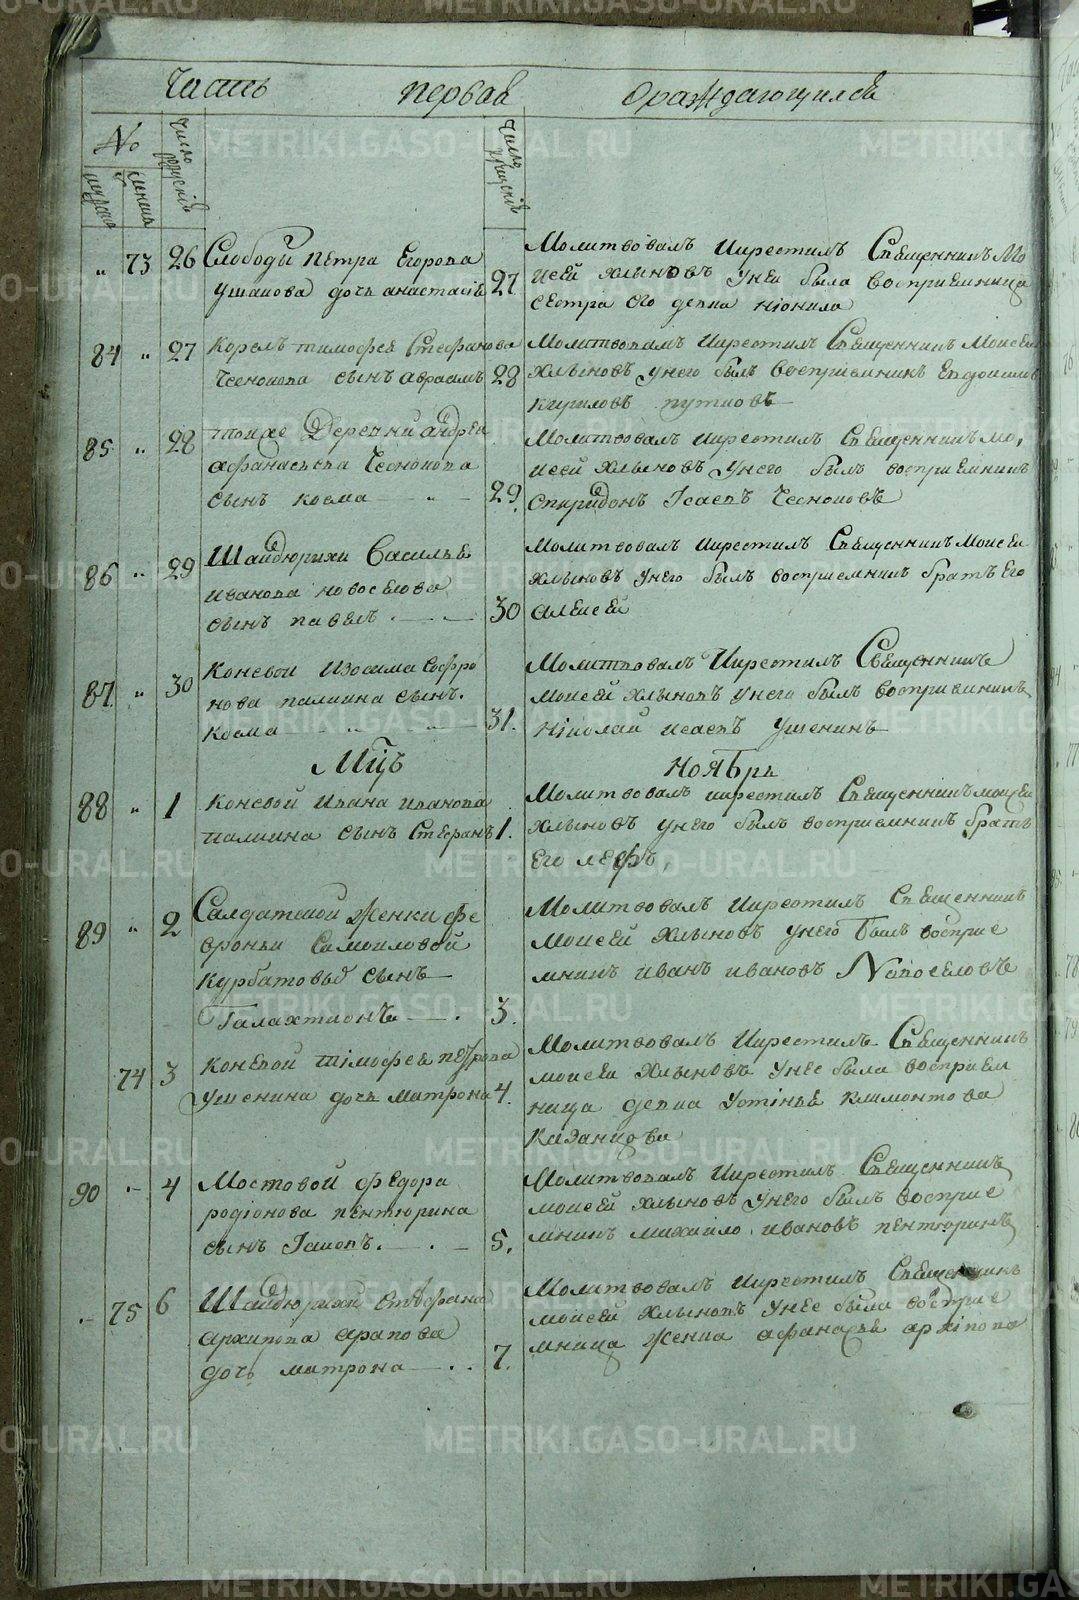 Часть первая ораждающихся
№
мужеска
женска
Число рождениѣ
Число крещениѣ
„ 73 26 Слободы Петра Егорова
Ушакова дочь анастасіѣ 27
Молитвовалъ икрестилъ Священникъ Мо
исей Хлыновъ унеѣ была восприемница
сестра его девка Ніонила
84 „ 27 Корелъ тимофея Стефанова
Чеснокова сынъ авраамъ 28
Молитвовалъ икрестилъ Священникъ Моисей
Хлыновъ унего былъ восприемникъ Евдокимъ
Кириловъ путковъ
85 „ 28 тойже Деревни андрея
афанасьева Чеснокова
сынъ косма 29.
Молитвовалъ икрестилъ Священникъ мо,
исей Хлыновъ унего былъ восприемникъ
Спиридонъ Ісаевъ Чесноковъ
86 „ 29 Шайдюрихи Василья
иванова новоселова
сынъ павелъ 30
Молитвовалъ икрестилъ Священникъ Моисей
Хлыновъ унего былъ восприемникъ братъ Его
алексей
87. „ 30 Коневой Изосима Софро
нова палкина сынъ.
Косма „ „ 31.
Молитвовалъ икрестилъ Священникъ
моисей Хлыновъ унего былъ восприемникъ
Ніколай исаевъ Ушенинъ
Мцъ Ноябрь
88 „ 1 Коневой Ивана иванова
палкина сынъ Стефанъ 1.
Молитвовалъ икрестилъ Священникъ моисей
Хлыновъ унего былъ восприемникъ братъ
Его
89 „ 2 Салдатской женки фе
вроньи Самоиловой
Курбатовыѣ сынъ
Галахтионъ 3.
Молитвовалъ икрестилъ Священникъ
моисей Хлыновъ унего былъ восприе
мникъ иванъ ивановъ Новоселовъ
74 3 Коневой тімофея петрова
Ушенина дочь матрона 4.
Молитвовалъ икрестилъ Священникъ
моисей Хлыновъ унее была восприем
ница девка устінья климонтова
Казанцова
90 „ 4 Мостовой федора
родіонова пентюрина
сынъ Іаковъ. 5.
Молитвовалъ икрестилъ Священникъ
моисей Хлыновъ унего былъ восприе
мникъ михайло ивановъ пентюринъ
„ 75 6 Шайдюрихи Стефана
архипова арапова
дочь матрона 7.
Молитвовалъ икрестилъ Священникъ
моисей Хлыновъ унее была восприе
мница женка афанасья архіпова
METRIKI.GASO-URAL.RU